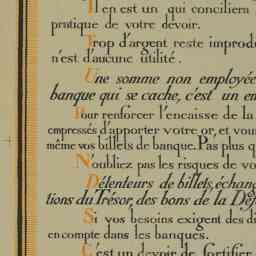 Il en est un qui conciliera
pratique de votre devoir.
Trop d'argent reste improdu
n'est d'aucune utilité.
Une somme non employée
banque qui se cache, c'est un en
Pour renforcer l'encaisse de la
empressés d'apporter votre or, et vous
même vos billets de banque. Pas plus q
N'oubliez pas les risques de vo
Détenteurs de billets, échang
tions du Trésor, des bons de la Déf
Si vos besoins exigent des di
en compte dans les banques.
C'est un devoir de fortifier